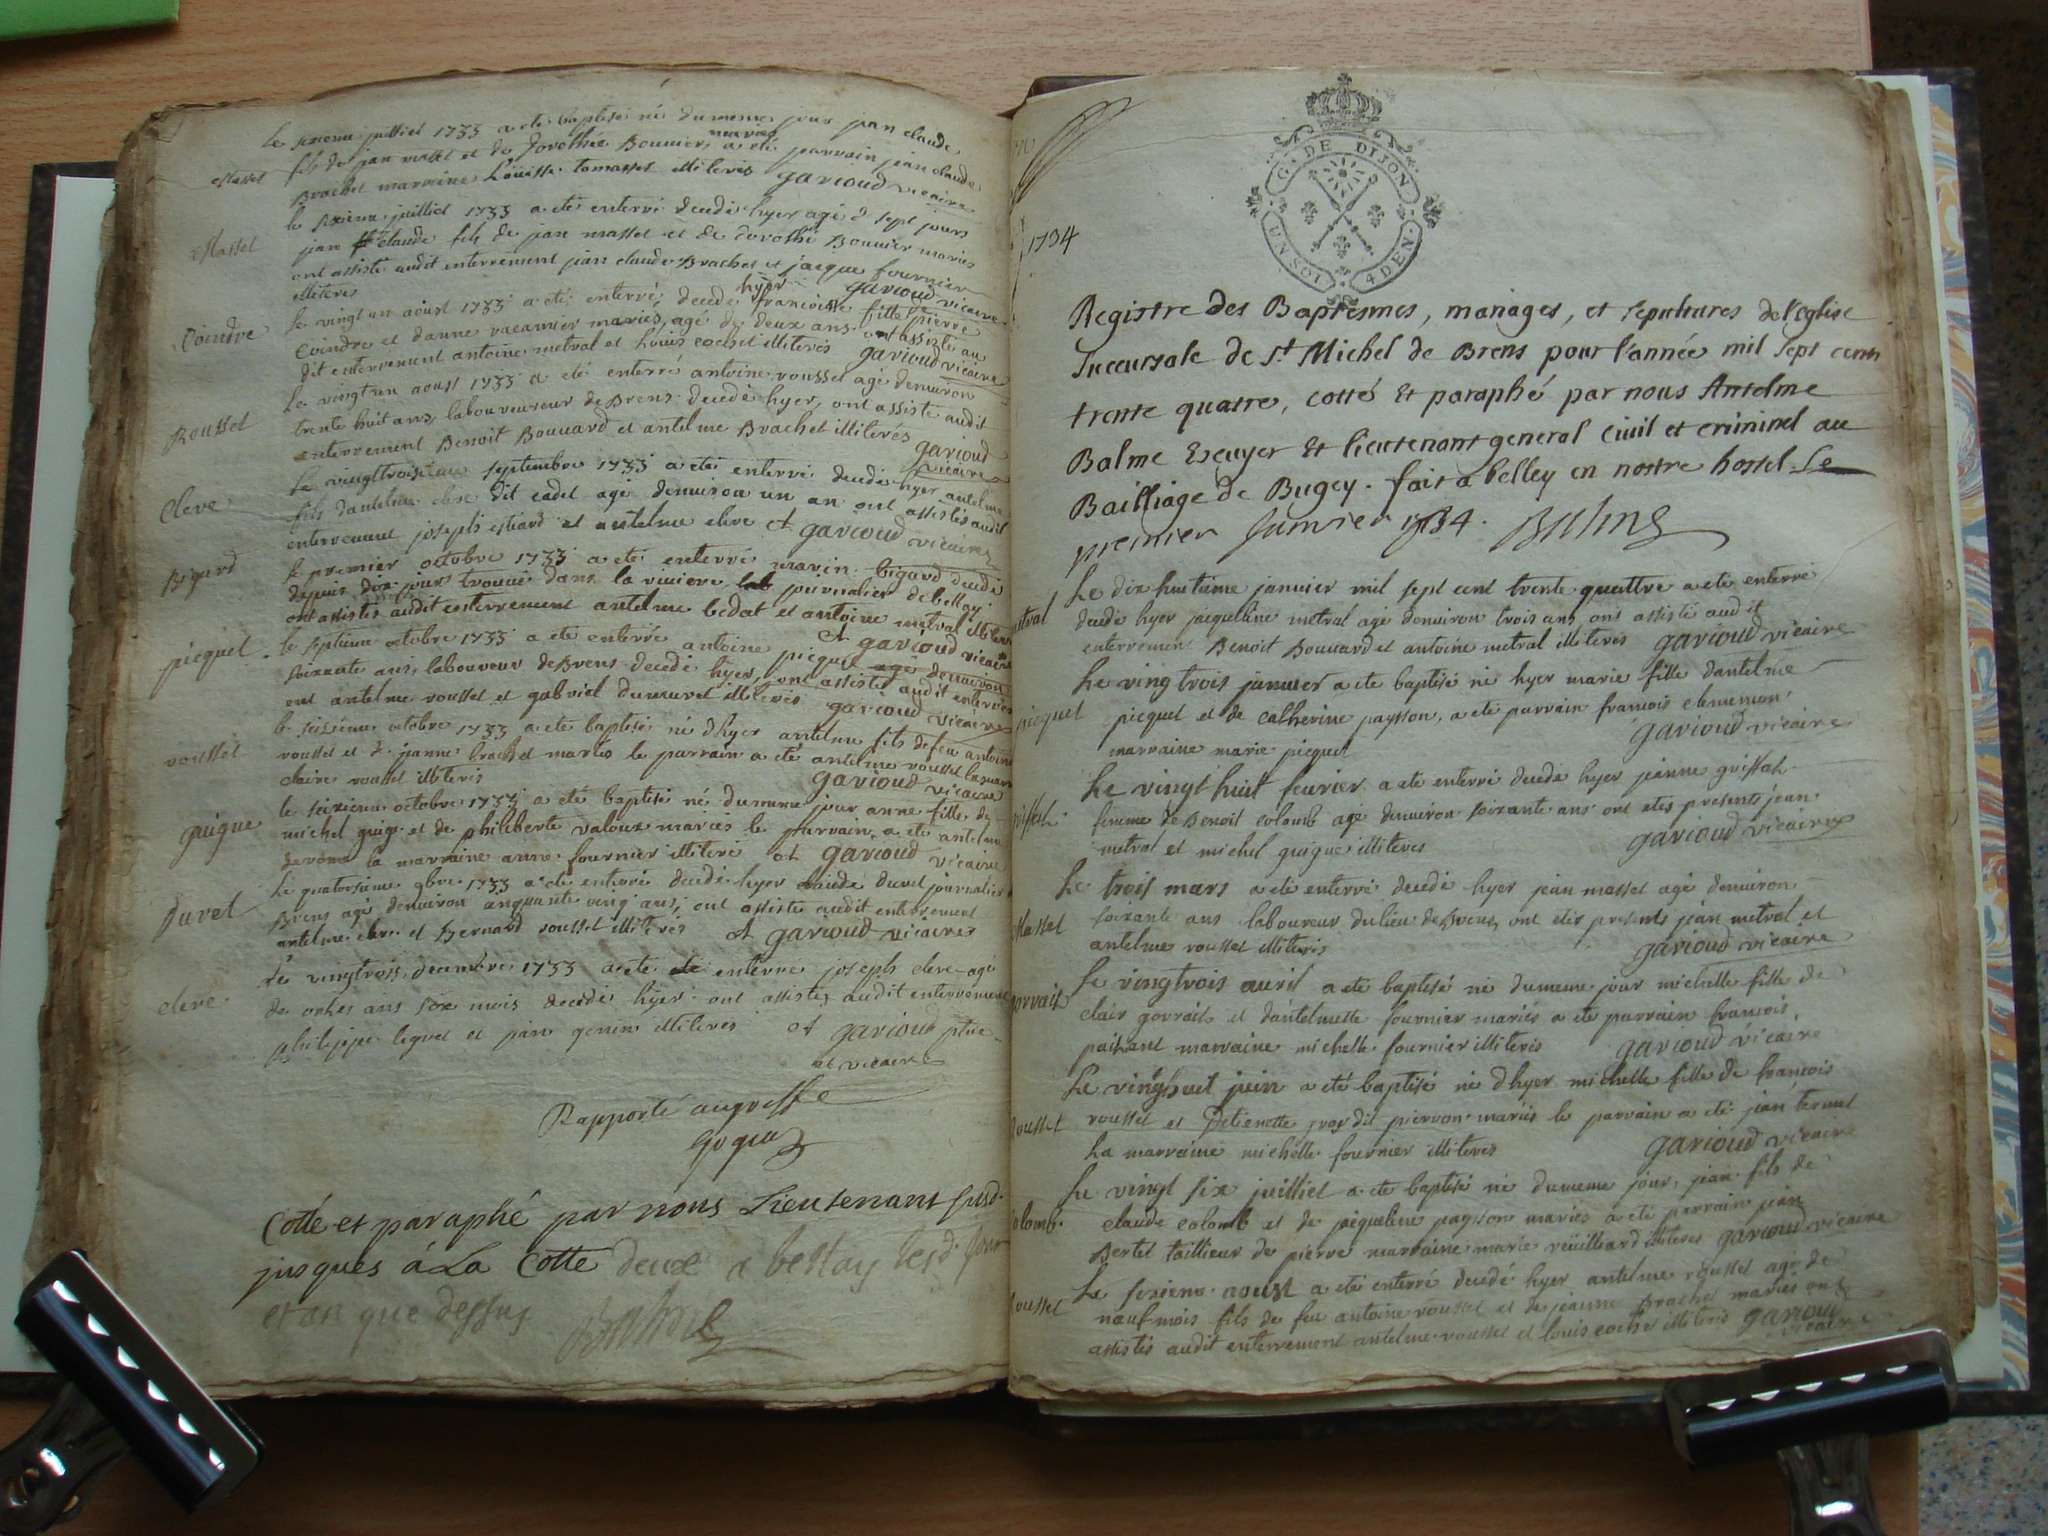 Le sixieme juilliet 1733 a eté baptisé né du meme jour jean claude
Massel
fils de jean massel et de dorothée Bouuier mariés a eté parrain jean claude
Brachet marraine Loüisse tomasset illiterés garioud vicaire
le juilliet 1733 a eté enterré decedé hyer agé d sept jours
Massel
jean claude fils de jean massel et de dorothé Bouuier mariés
ont assisté audit enterrement jean claude Brachet et jacque fournier
illiterés garioud vicaire
Le vingt un aoust 1733 a eté enterré decedé hyer francoise fille pierre
Coindre
Coindre et danne vacamier mariés, agé de deux ans ont assisté au
dit enterrement antoine metral et Louis cochet illiterés garioud vicaire
Le vingt un aoust 1733 a eté enterré antoine roussel agé denuiron
Roussel
trente huit ans, laboureur de Brens decedé hyer, ont assisté audit
enterrement Benoit Bouuard et antelme Brachet illiterés garioud
vicaire
Le vingttroisieme septembre 1733 a eté enterré decedé hyer antelme
Cleve
fils dantelme cleve dit cadet agé denuiron un an ont assistés audit
enterrement joseph et antelme cleve et garioud vicaire
Bigard
le premier octobre 1733 a eté enterré marin bigard decedé
depuis dix jours trouué dans la riuiere journalier de belley
ont assistés audit enterrement antelme bedat et antoine metral illiterés
et garioud vicaire
picquet
le septieme octobre 1733 a eté enterré antoine picquet agé denuiron
soixante ans, laboureur de Brens decedé hyer, ont assisté audit enterrement
antelme roussel et gabriel dumuret illiterés garioud vicaire
le seizieme octobre 1733 a eté baptisé né dhyer antelme fils defeu antoine
roussel
roussel et d janne brachet mariés le parrain a eté antelme roussel
claire roussel illiterés garioud vicaire
le seizieme octobre 1733 a eté baptisé né du meme jour anne fille de
guigue
michel guige et de philiberte valoux mariés le parrain a eté antelme
la marraine anne fournier illiteré et garioud vicaire
Le quatorsieme 9bre 1733 a eté enterré decedé hyer claude duvel journalier
Duvel
Brens agé denuiron cinquante cinq ans, ont assisté audit enterrement
antelme cleve et Bernard roussel illiterés et garioud vicaires
Le vingtrois decembre 1733 a eté enterré joseph cleve agé
cleve
de onhes ans six mois decedé hyer ont assistes audit enterrement
philippe liquet et jean genin illiterés et garioud ptre
et vicaire
Rapporté augreffe
Coquaz
Cotté et paraphé par nous Lieutenant susd.
jusques á La Cotte deuxe a bellay lesd. jour
et an que dessus
G. DE DIJON
UN SOL 4 DEN
1734
Registre des Baptesmes, mariages, et sepultures de l'eglise
succursale de st Michel de Brens pour l'année mil sept cents
trente quatre, cotté Et paraphé par nous Antelme
Balme Escuyer Et lieutenant general Ciuil et criminel au
Bailliage de Bugey. fait a belley en nostre hostel Le
premier Januier 1734. Balme
Le dix huitieme januier mil sept cent trente quattre a eté enterré
metral
decedé hyer jacqueline metral agé denuiron trois ans, ont assisté audit
enterrement Benoit Bouuard et antoine metral illiterés garioud vicaire
Le vingtrois januier a eté baptisé né hyer marie fille dantelme
picquet
picquet et de catherine paysson, a eté parrain francois clememon
marraine marie picquet garioud vicaire
Le vingt huit feurier a eté enterré decedé hyer jeanne griffat
femme de Benoit colomb agé denuiron soixante ans ont etés presents jean
metral et michel guigue illiteres garioud vicaire
Le trois mars a eté enterré decedé hyer jean massel agé denuiron
Massel
soixante ans laboureur du lieu de Brens, ont etés presents jean metral et
antelme roussel illiterés garioud vicaire
Le vingtrois auril a eté baptisé né du meme jour michelle fille de
gorrait
clair gorrait et dantelmette fournier mariés a eté parrain francois
paihant marraine michelle fournier illiterés garioud vicaire
Le vinghuit juin a eté baptisé né dhyer michelle fille de francois
roussel
roussel et detienette dit pierron mariés le parrain a eté jean
La marraine michelle fournier illiteres garioud vicaire
Le vingt six juilliet a eté baptisé né du meme jour, jean fils de
Colomb
claude colomb et de jacqueline paysson mariés a eté parrain jean
Bertet taillieur de pierre marraine marie reüilliard illiteres garioud vicaire
Le sixieme aoust a eté enterré decedé hyer antelme roussel agé de
roussel
neuf mois fils de feu antoine roussel et de jeanne Brachet mariés ont
assistés audit enterrement antelme roussel et louis cochet illiterés garioud
vicaire